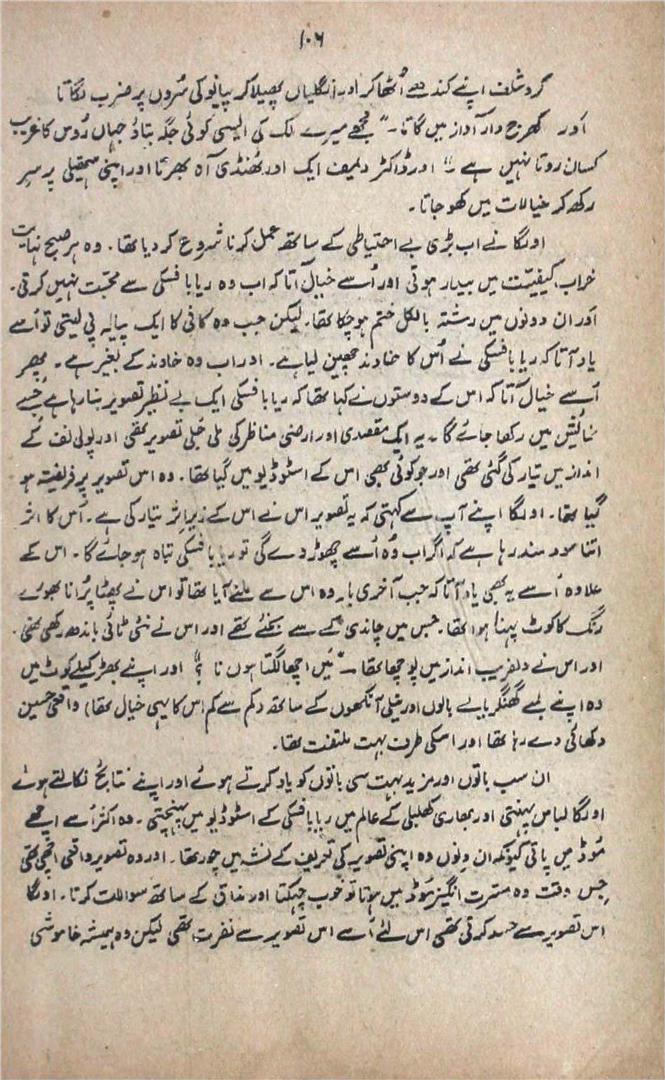 ۱۰۶
گردشلف اپنے کندھے اُٹھا کر اور انگلیاں پھیلا کر پیانو کی سُروں پر ضرب لگاتا
اَور گھرج دار آواز میں گاتا۔ "مجھے میرے ملک کی ایسی کوئی جگہ بتاؤ جہاں رُوس کا غریب
کسان روتا نہیں ہے۔" اور ڈاکٹر دلمیف ایک اور ٹھنڈی آہ بھرتا اور اپنی ہتھیلی پر سر
رکھ کر خیالات میں کھو جاتا۔
اولگا نے اب بڑی بے احتیاطی کے ساتھ عمل کرنا شروع کر دیا تھا۔ وہ ہر صبح نہایت
خراب کیفیّت میں بیدار ہوتی اور اُسے خیال آتا کہ اب وہ ریابافسکی سے محبّت نہیں کرتی۔
اَور ان دونوں میں رشتہ بالکل ختم ہو چکا تھا۔ لیکن جب وہ کافی کا ایک پیالہ پی لیتی تو اُسے
یاد آتا کہ ریابافسکی نے اُس کا خاوند چھین لیا ہے۔ اور اب وہ خاوند کے بغیر ہے۔ پھر
اُسے خیال آتا کہ اس کے دوستوں نے کہا تھا کہ ریابافسکی ایک بے نظیر تصویر بنا رہا ہے جسے
نمائش میں رکھا جائے گا۔ یہ ایک مقصدی اور ارضی مناظر کی ملی جُلی تصویر تھی اور پولی نف کے
انداز میں تیار کی گئی تھی اور جو کوئی بھی اس کے اسٹوڈیو میں گیا تھا۔ وہ اس تصویر پر فریفتہ ہو
گیا تھا۔ اولگا اپنے آپ سے کہتی کہ یہ تصویر اس نے اس کے زیرِ اثر تیار کی ہے۔ اُس کا اثر
اتنا سود مند رہا ہے کہ اگر اب وُہ اُسے چھوڑ دے گی تو ریابافسکی تباہ ہو جائے گا۔ اس کے
علاوہ اُسے یہ بھی یاد آتا کہ جب آخری بار وہ اس سے ملنے آیا تھا تو اس نے پھٹا پُرانا بھورے
رنگ کا کوٹ پہنا ہوا تھا۔ جس میں چاندی کے سے بخئے تھے اور اس نے نئی ٹائی باندھ رکھی تھی۔
اور اس نے دلفریب انداز میں پوچھا تھا۔ "مَیں اچھا لگتا ہوں نا ؟" اور اپنے بھڑکیلے کوٹ میں
وہ اپنے لمبے گھنگریالے بالوں اور نیلی آنکھوں کے ساتھ (کم سے کم اس کا یہی خیال تھا) واقعی حسین
دکھائی دے رہا تھا اور اسکی طرف بہت ملتفت تھا۔
ان سب باتوں اور مزید بہت سی باتوں کو یاد کرتے ہوئے اور اپنے نتائج نکالتے ہوئے
اولگا لباس پہنتی اور بھاری کھلبلی کے عالم میں ریابافسکی کے اسٹوڈیو میں پہنچتی۔ وہ اکثر اُسے اچھے
مُوڈ میں پاتی کیونکہ ان دِنوں وہ اپنی تصویر کی تعریف کے نشہ میں چور تھا۔ اور وہ تصویر واقعی اچھی تھی
جس وقت وہ مسّرت انگیز مُوڈ میں ہوتا تو خوب چہکتا اور مذاق کے ساتھ سوالات کرتا۔ اولگا
اس تصویر سے حسد کرتی تھی اس لئے اُسے اس تصویر سے نفرت تھی لیکن وہ ہمیشہ خاموشی